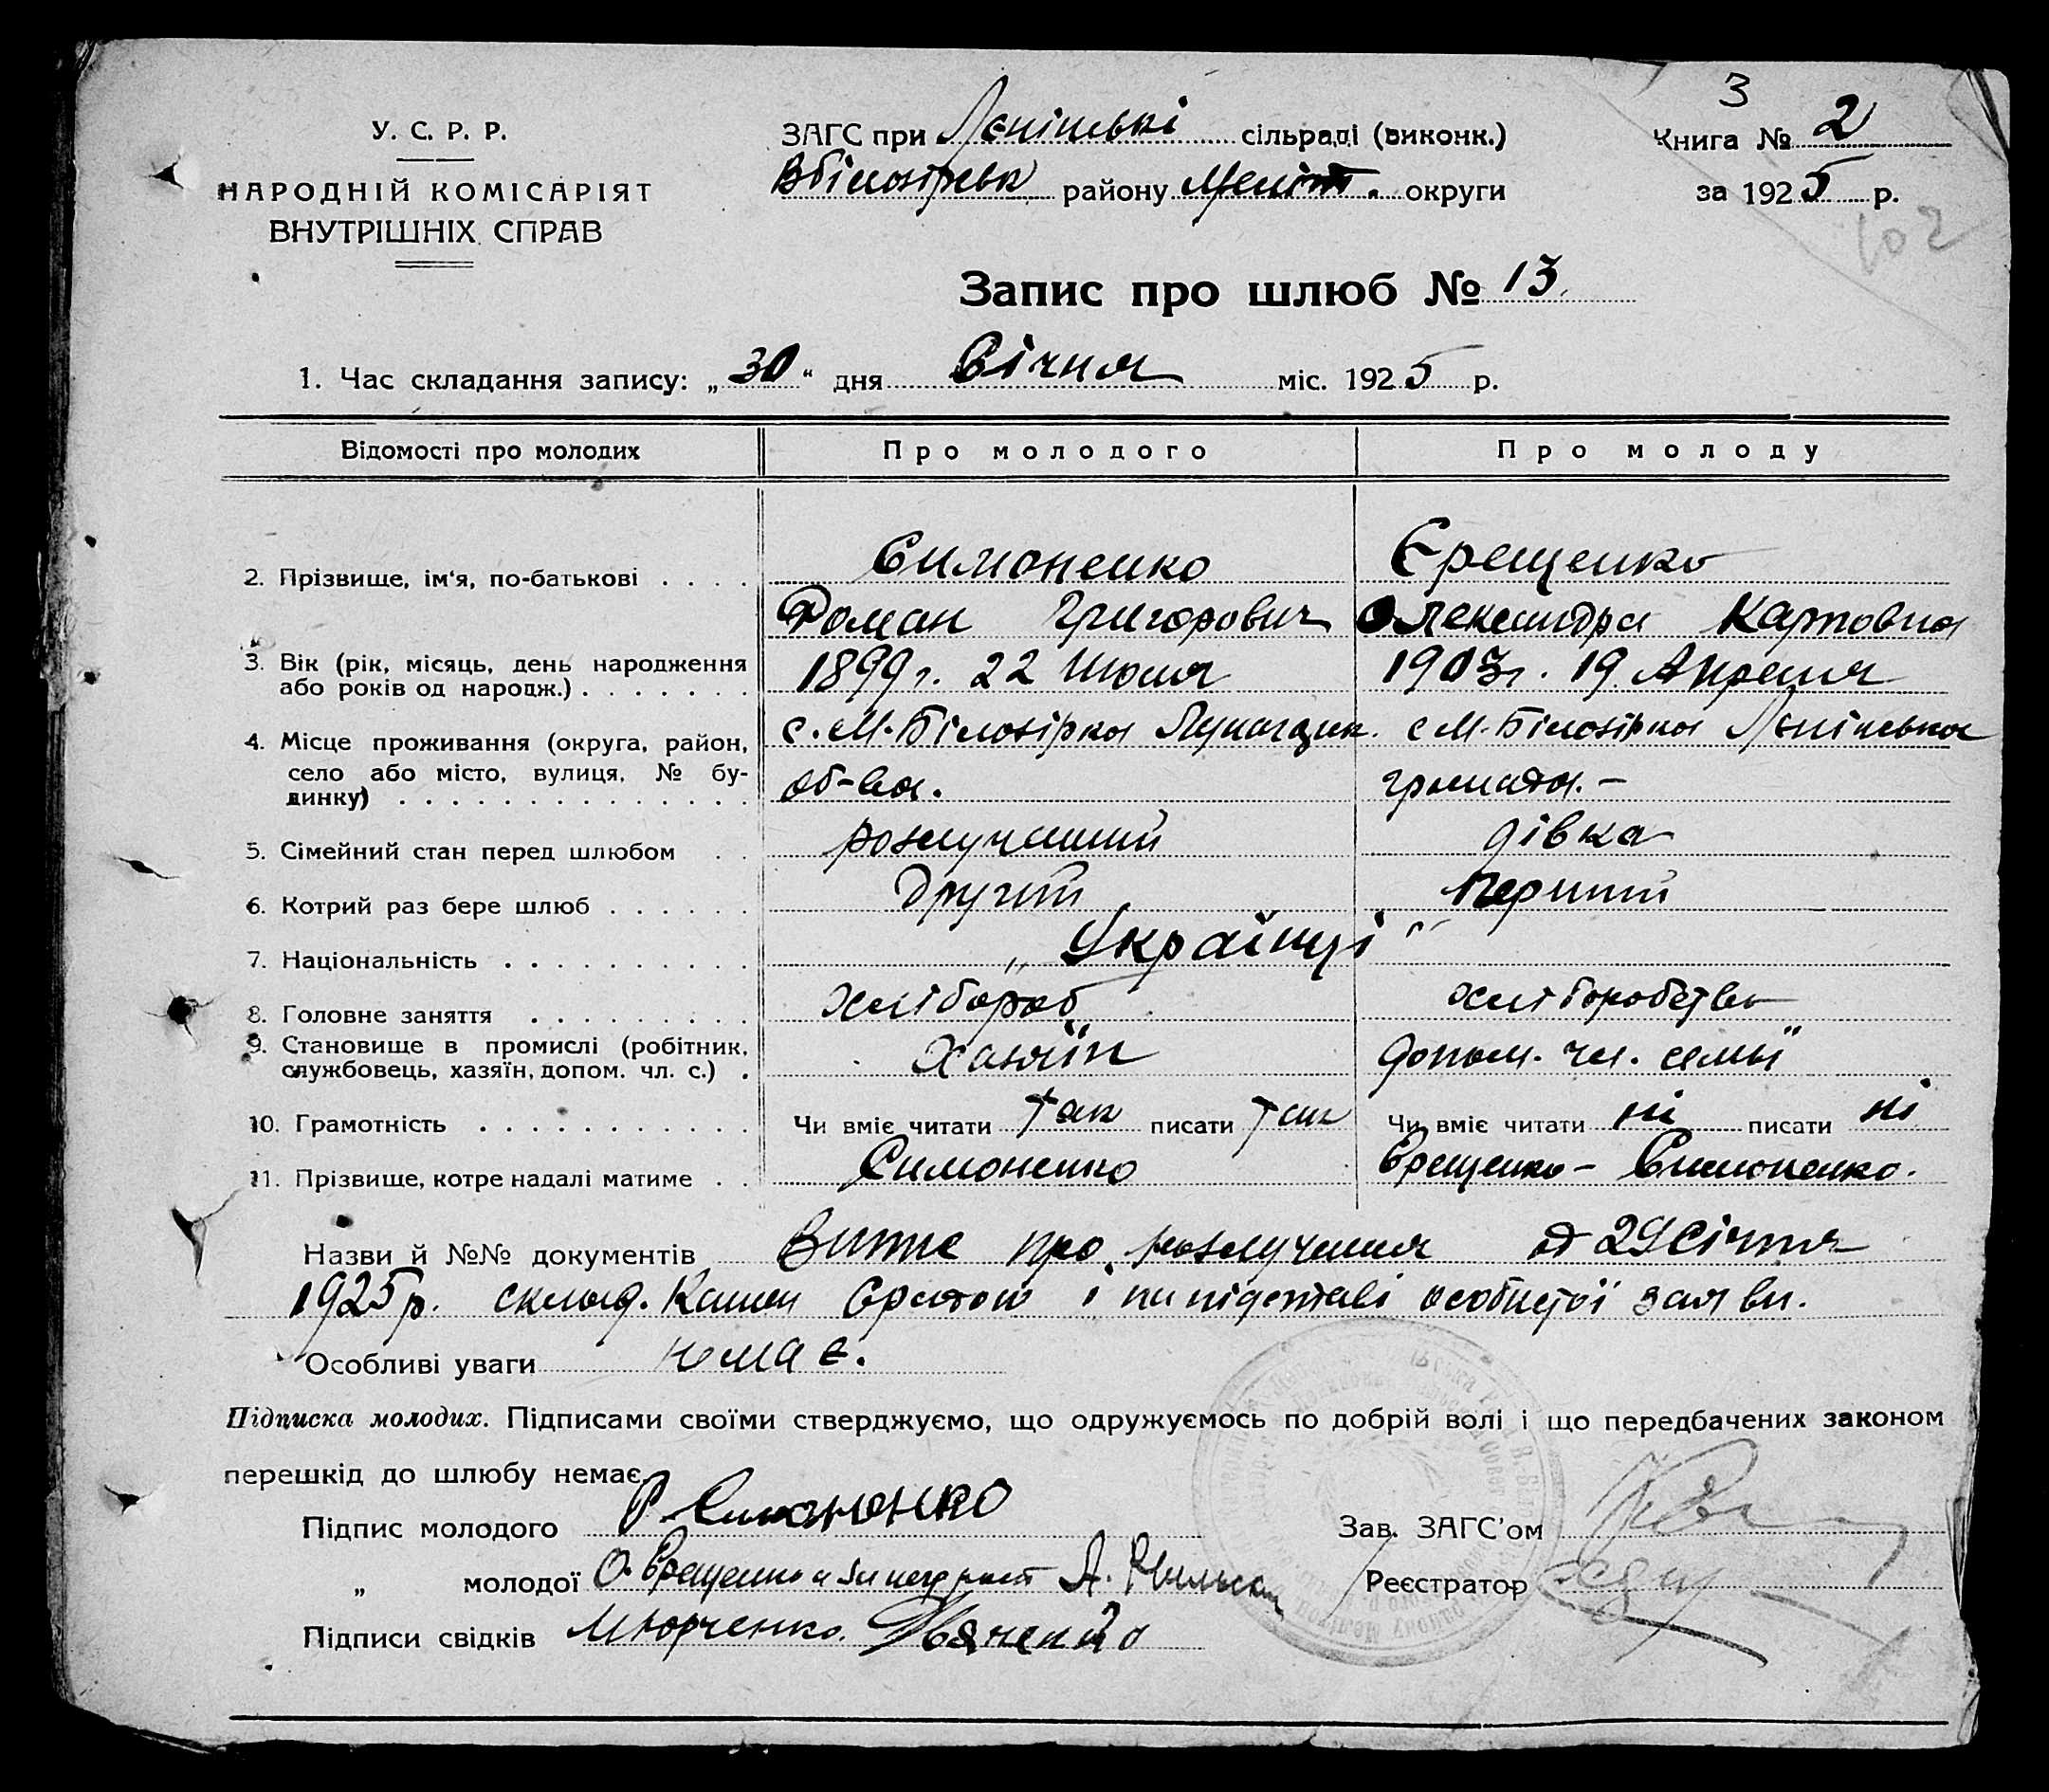 3
У. С. Р. Р.
НАРОДНІЙ КОМІСАРІЯТ
ВНУТРІШНІХ СПРАВ
ЗАГС при Лєнінські сільраді (виконк.)
Вбілозірськ району Меліт. округи
Книга № 2
за 1925 р.
102
Запис про шлюб № 13
1. Час складання запису: „30“ дня Січня міс. 1925 р.
Відомості про молодих Про молодого Про молоду
2. Прізвище, ім'я, по-батькові . . . . Симоненко Єрещенко
Роман Григорович Олександра Карповна
3. Вік (рік, місяць, день народження 1899 г. 22 Июля 1903 г. 19 Апреля
або років од народж.) . . . . . . .
4. Місце проживання (округа, район, с. М. Білозірка с М. Білозірка Лєнінська
село або місто, вулиця, № бу-
динку) . . . . . . . . . . . . . . об-ва. громада. –
5. Сімейний стан перед шлюбом . . розлучений дівка
6. Котрий раз бере шлюб . . . . . . другий перший
7. Національність . . . . . . . . . . „Українці“
8. Головне заняття . . . . . . . . . хлібороб хліборобство
9. Становище в промислі (робітник, хазяїн допом. чл. семьї
службовець, хазяїн, допом. чл. с.) .
10. Грамотність . . . . . . . . . . . Чи вміє читати так писати так Чи вміє читати ні писати ні
11. Прізвище, котре надалі матиме . . Симоненко Єрещенко – Симоненко.
Назви й №№ документів Витяг про розлучення від 29 Січня
1925 р. склад. і на підставі особистої заяви.
Особливі уваги немає.
Підписка молодих. Підписами своїми стверджуємо, що одружуємось по добрій волі і що передбачених законом
перешкід до шлюбу немає.
Підпис молодого Р Симоненко
Зав. ЗАГС'ом
„ молодої О. Єрещенко а
Реєстратор
Підписи свідків М Юрченко.